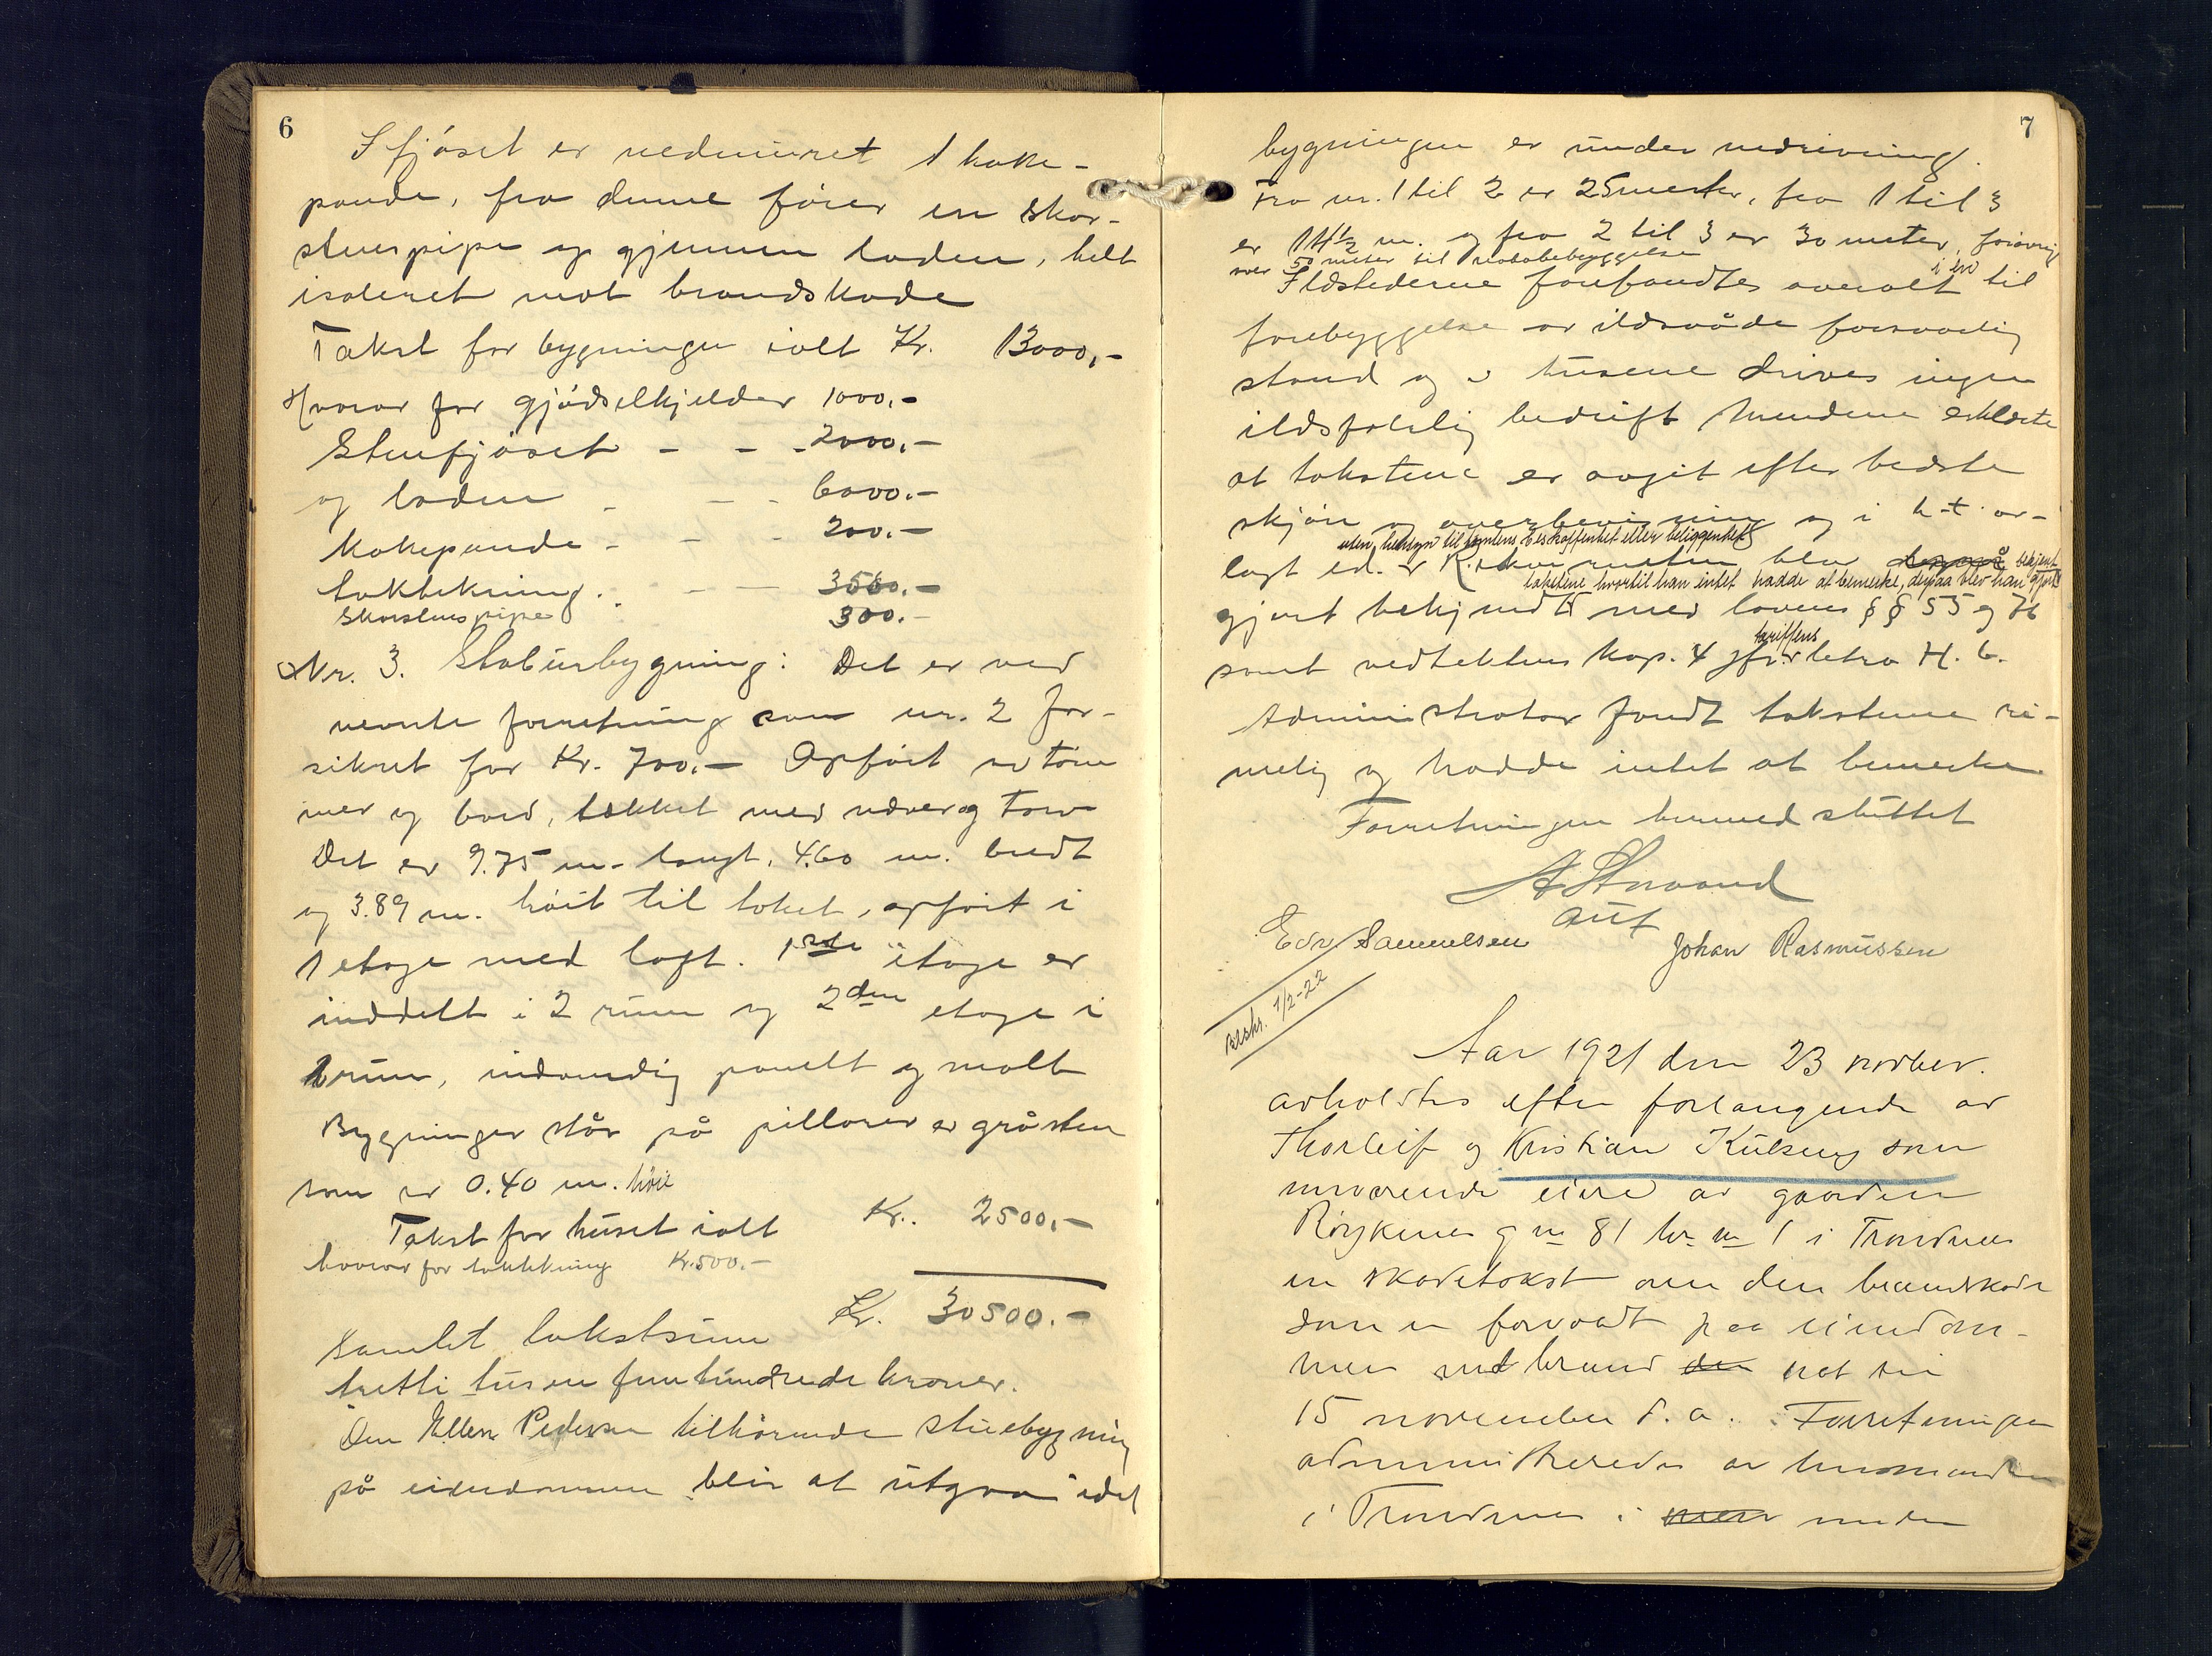 6
I fjøset er nedmuret 1 koke-
pande, fra denne fører en skor-
stenspipe op gjennem laden, helt
isoleret mot brandskade
Takst for bygningen ialt Kr. 13000,-
Hvorav for gjødselkjelder 1000.-
Stenfjøset - - - 2000.-
og laden - - - 6000.-
Kokepande - - - 200.-
taktekning. - - 3500.-
Skorstenspipe 300.-
Nr. 3. Stabursbygning: Det er ved
nevnte forretning som nr. 2 for-
sikret for Kr. 700.- Opført av tøm
mer og bord, tekket med never og torv
Det er 9.75 m. langt, 4.60 m. bredt
og 3.89 m. høit til taket, opført i
1 etage med loft. 1ste etage er
inddelt i 2 rum og 2den etage i
1 rum, indvendig panelt og malt
Bygningen står på pillarer av gråsten
som er 0.40 m. høie
Takst for huset ialt Kr. 2500.-
hvorav for taktekning Kr. 500.-
Samlet takstsum Kr. 30500.-
tretti tusen femhundrede kroner.
Den Ellen Pedersen tilhørende stuebygning
på eiendommen blir at utgaa idet
7
bygningen er under nedrivning.
Fra nr. 1 til 2 er 25 meter, fra 1 til 3
er 14½ m. og fra 2 til 3 er 30 meter, forøvrig
over 50 meter til nabobebyggelse
Ildstederne forefandtes overalt i en til
forebyggelse av ildsvåde forsvarlig
stand og i husene drives ingen
ildsfarlig bedrift Mendene erklærte
at takstene er avgit efter bedste
skjøn og overbevisning og i h.t. av-
uten hensyn til tomtens beskaffenhet eller beliggenhet
lagt ed. Rekvirenten blev derpå bekjent
takstene hvortil han intet hadde at bemerke, derpaa blev han gjort
gjort bekjendt med lovens §§ 55 og 76
samt vedtektens kap. 4 jfr. tariffens letra H. 6.
Administrator fandt takstene ri-
melig og hadde intet at bemerke.
Forretningen hermed sluttet
A Strand
Edv. Samuelsen Johan Rasmussen
Utskr. 1/2-22
Aar 1921 den 23 novber.
avholdtes efter forlangende av
Thorleif og Kristian Kulseng som
nuværende eiere av gaarden
Røykenes g no 81 br no 1 i Trondenes
en skadetakst over den brandskade
som er forvoldt paa eiendom-
men ved brand den nat til
15 november d. a. Forretningen
administreredes av lensmanden
i Trondenes i men under